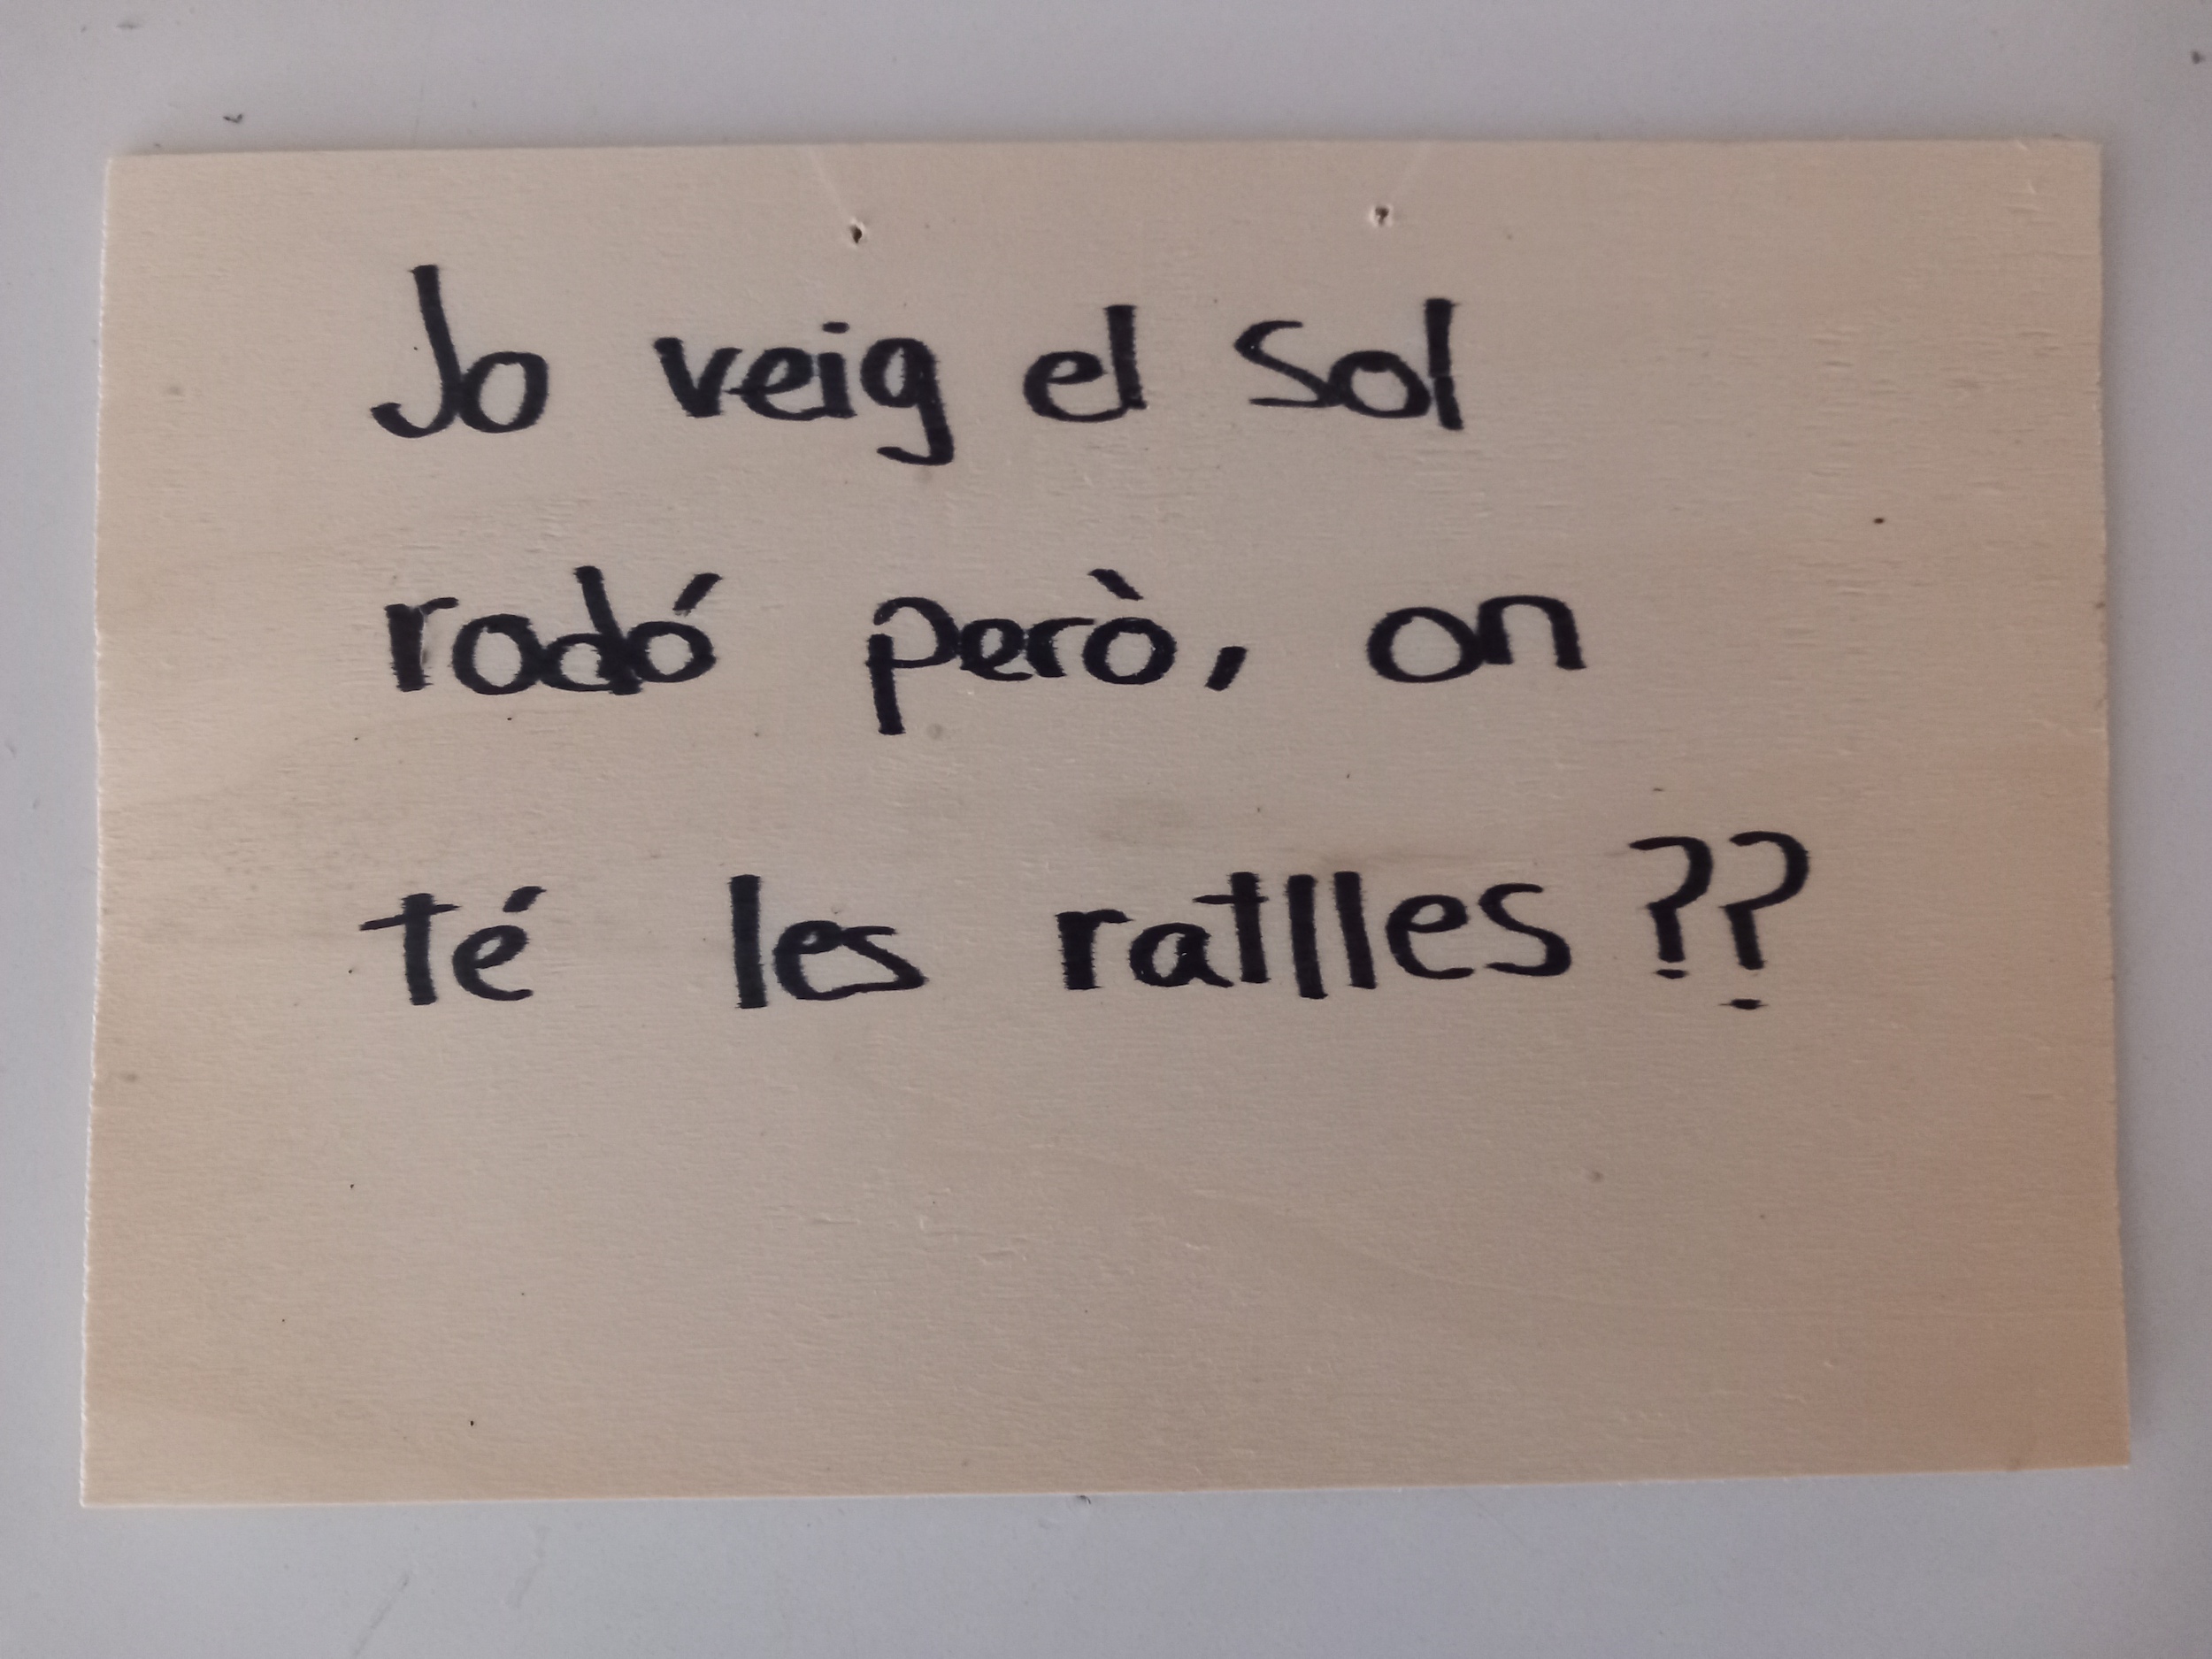 Jo veig el sol
rodó però, on
té les ratlles??